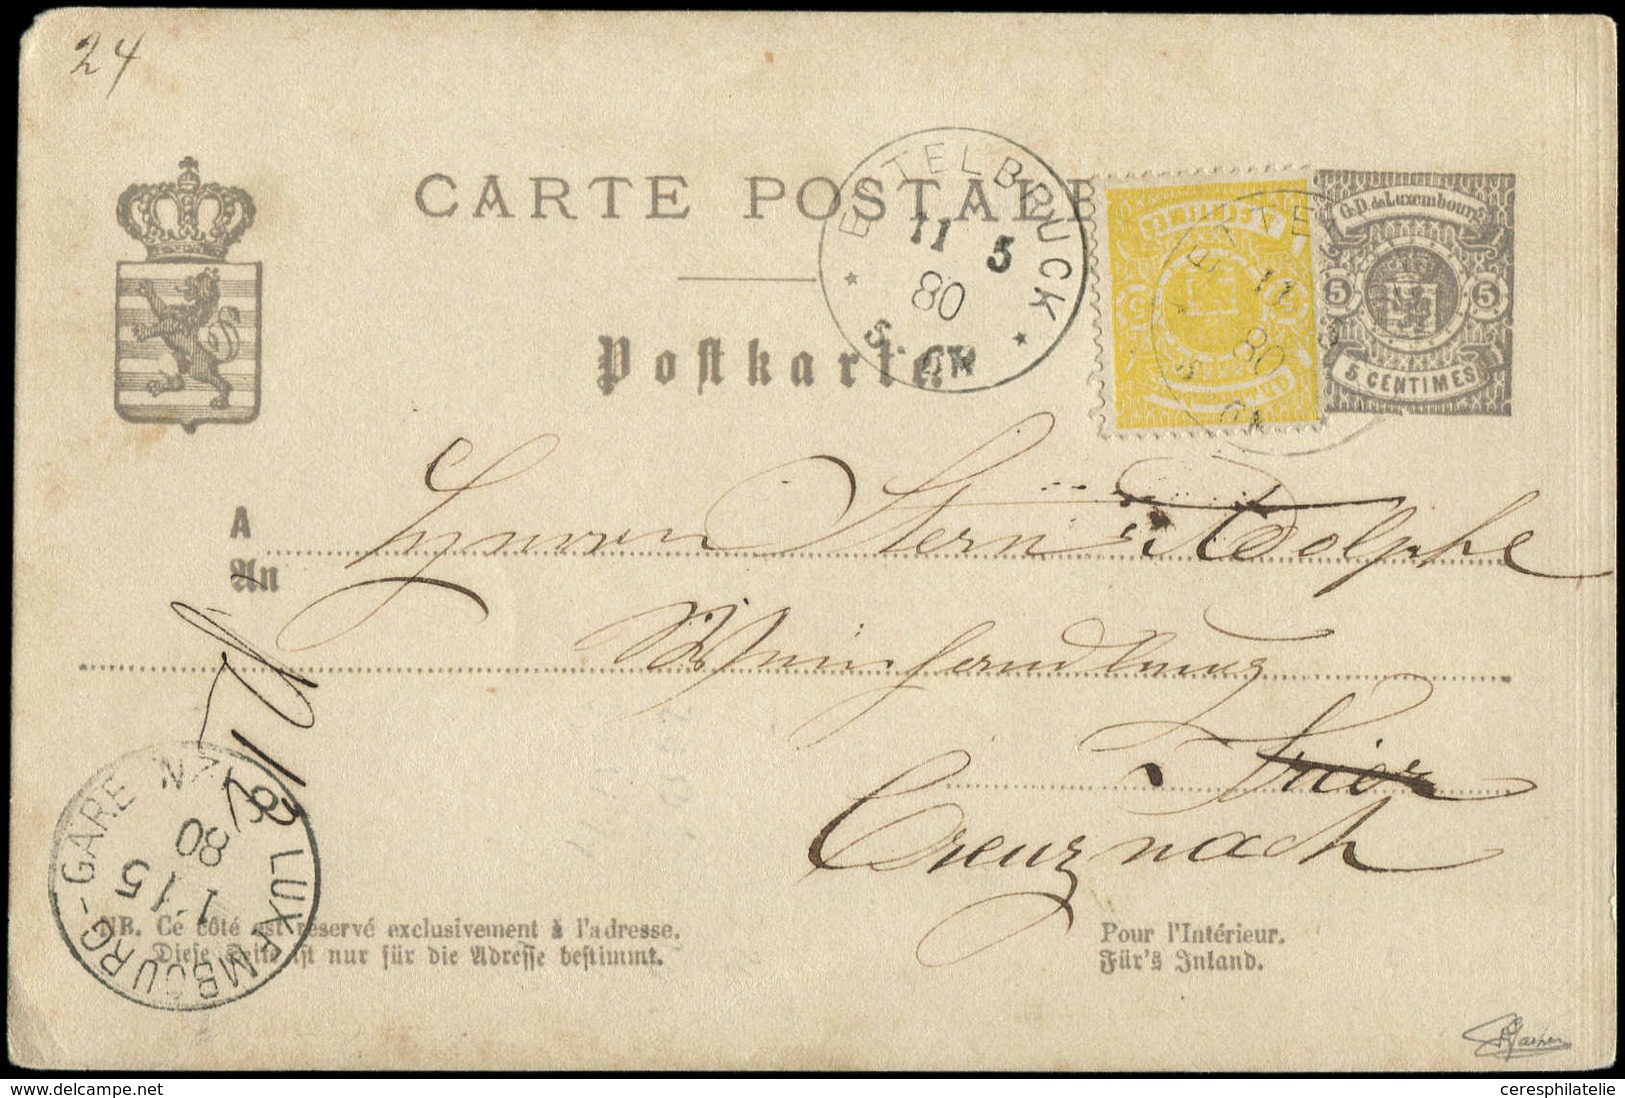 24
CARTE POSTALE
Postkarte
ETTELBRUCK
11 5
80
5
G.D. de Luxembourg
5 5
5 CENTIMES
CENTIMES
11
80
A
An
Stern Adolphe
Weinhandlung
Trier
Creuznach
LUXEMBOURG-GARE
1-15
80
NB. Ce côté est réservé exclusivement à l'adresse.
Diese Seite ist nur für die Adresse bestimmt.
Pour l'Intérieur.
Für's Inland.
ceresphilatelie